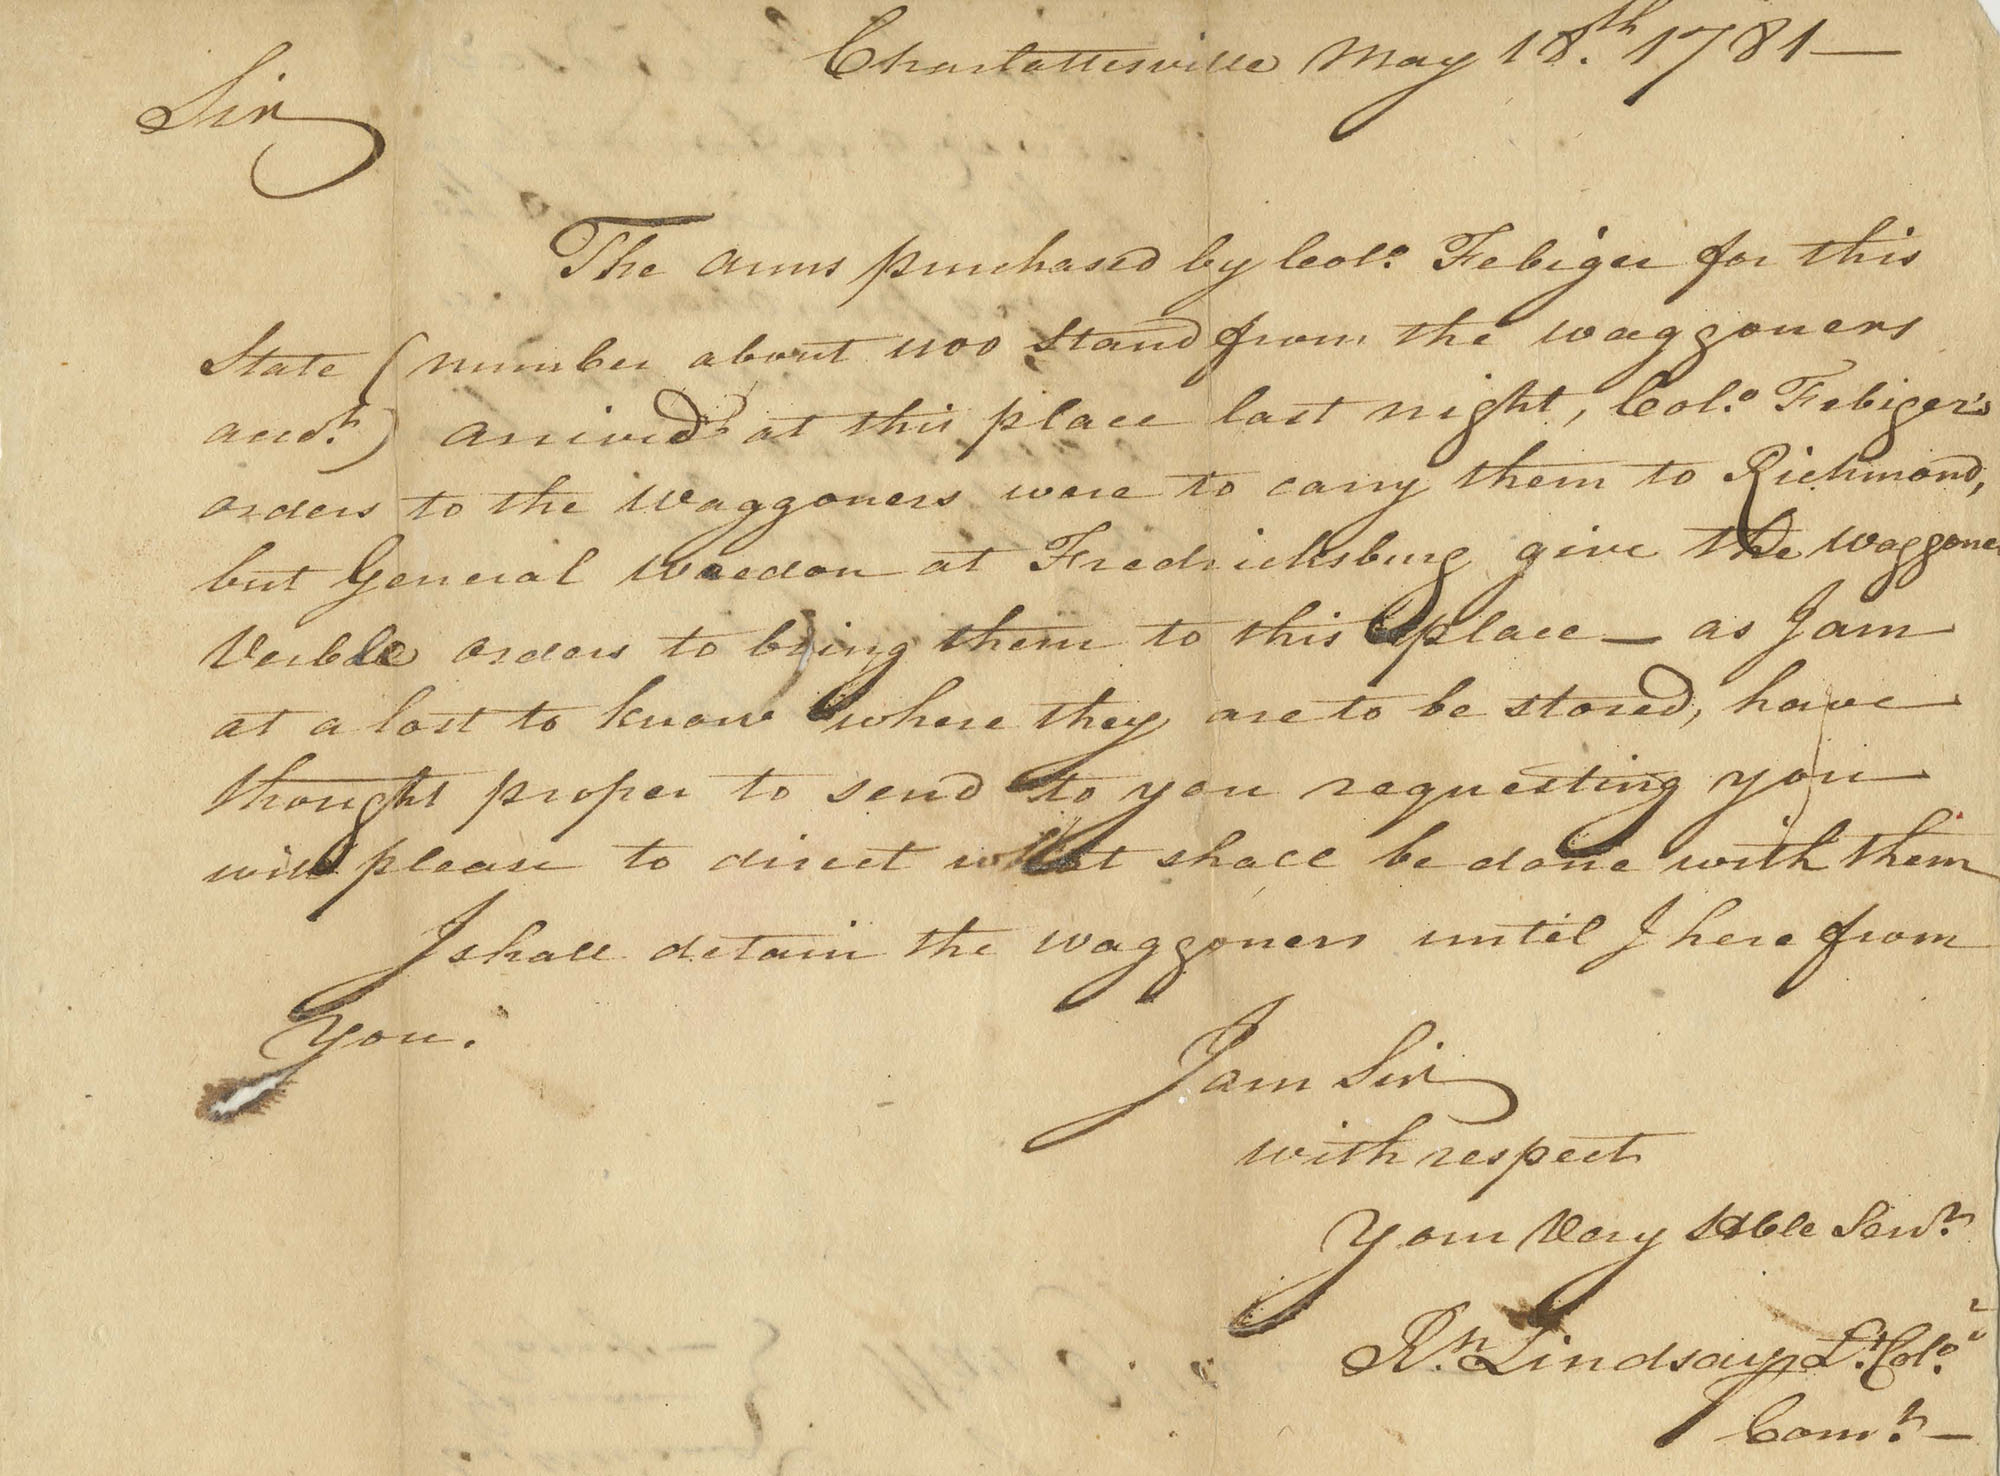 Charlattesville May 18.th 1781 —
Sir
The Arms purchased by Colo. Febiger for this
State (number about 1100 Stand from the waggoners
acct.) arrived at this place last night, Colo. Febiger's
orders to the Waggoners were to carry them to Richmond,
but General Weedon at Fredricksburg give the Waggoner
Verble orders to bring them to this place — as I am
at a lost to know where they are to be stored, have
thought proper to send to you requesting you
will please to direct what shall be done with them
I shall detain the waggoners until I here from
You.
I am Sir
with respect
Your Very Hble Servt.
Rn. Lindsay Lt. Colo.
Comt. —